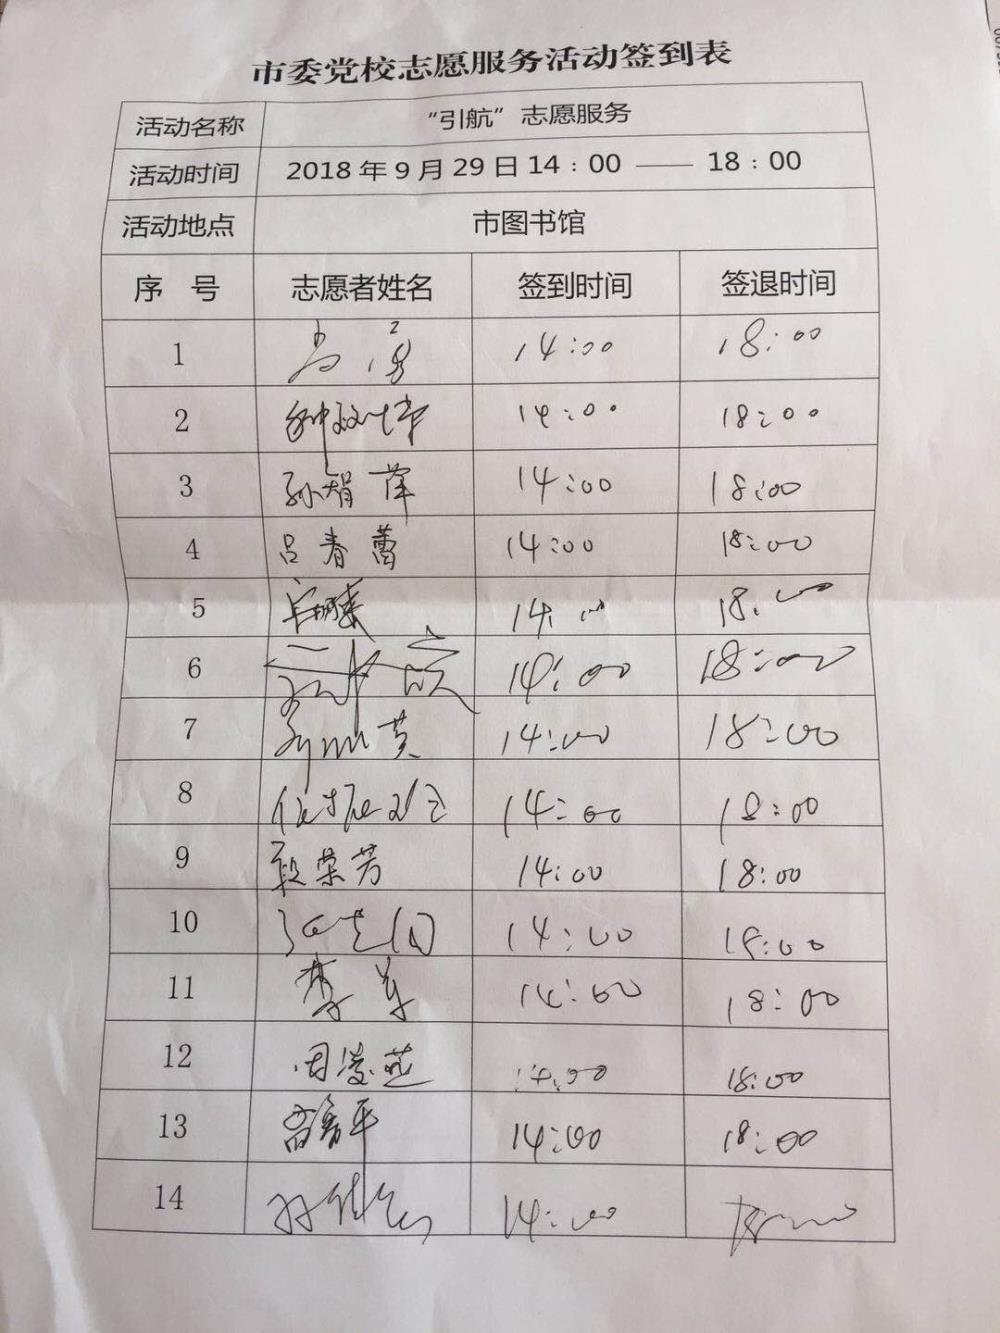 市委党校志愿服务活动签到表
活动名称 “引航”志愿服务
活动时间 2018年9月29日14：00 —— 18：00
活动地点 市图书馆
序 号 志愿者姓名 签到时间 签退时间
1 14:00 18:00
2 14:00 18:00
3 孙娟萍 14:00 18:00
4 吕春蕾 14:00 18:00
5 14:00 18:00
6 14:00 18:00
7 14:00 18:00
8 14:00 18:00
9 段荣芳 14:00 18:00
10 14:00 18:00
11 李军 14:00 18:00
12 周凌燕 14:00 18:00
13 14:00 18:00
14 14:00